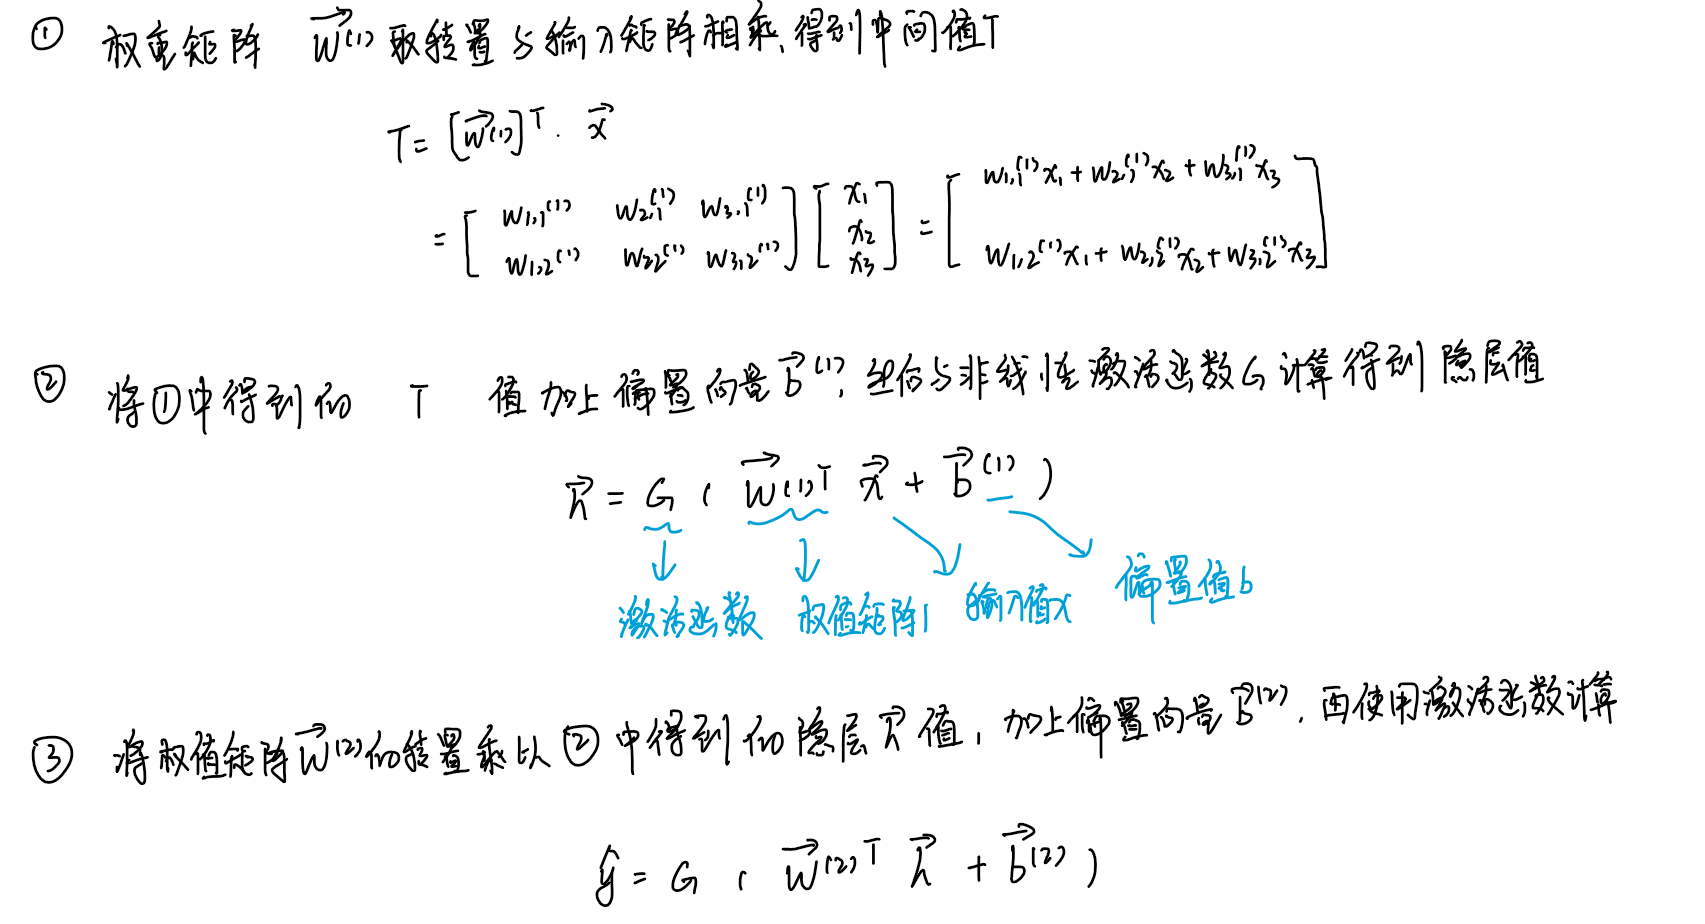 ① 权重矩阵 W⃗⁽¹⁾ 取转置与输入矩阵相乘,得到中间值T
T = [W⃗⁽¹⁾]ᵀ · x⃗
= [ w1,1⁽¹⁾ w2,1⁽¹⁾ w3,1⁽¹⁾ ; w1,2⁽¹⁾ w2,2⁽¹⁾ w3,2⁽¹⁾ ] [ x₁ ; x₂ ; x₃ ] = [ w1,1⁽¹⁾x₁ + w2,1⁽¹⁾x₂ + w3,1⁽¹⁾x₃ ; w1,2⁽¹⁾x₁ + w2,2⁽¹⁾x₂ + w3,2⁽¹⁾x₃ ]
② 将①中得到的 T 值加上偏置向量 b⃗⁽¹⁾,然后与非线性激活函数G计算得到隐层值
h⃗ = G ( W⃗⁽¹⁾ᵀ x⃗ + b⃗⁽¹⁾ )
激活函数 权值矩阵1 输入值x 偏置值b
③ 将权值矩阵W⃗⁽²⁾的转置乘以②中得到的隐层h⃗值,加上偏置向量b⃗⁽²⁾,再使用激活函数计算
ŷ = G ( W⃗⁽²⁾ᵀ h⃗ + b⃗⁽²⁾ )